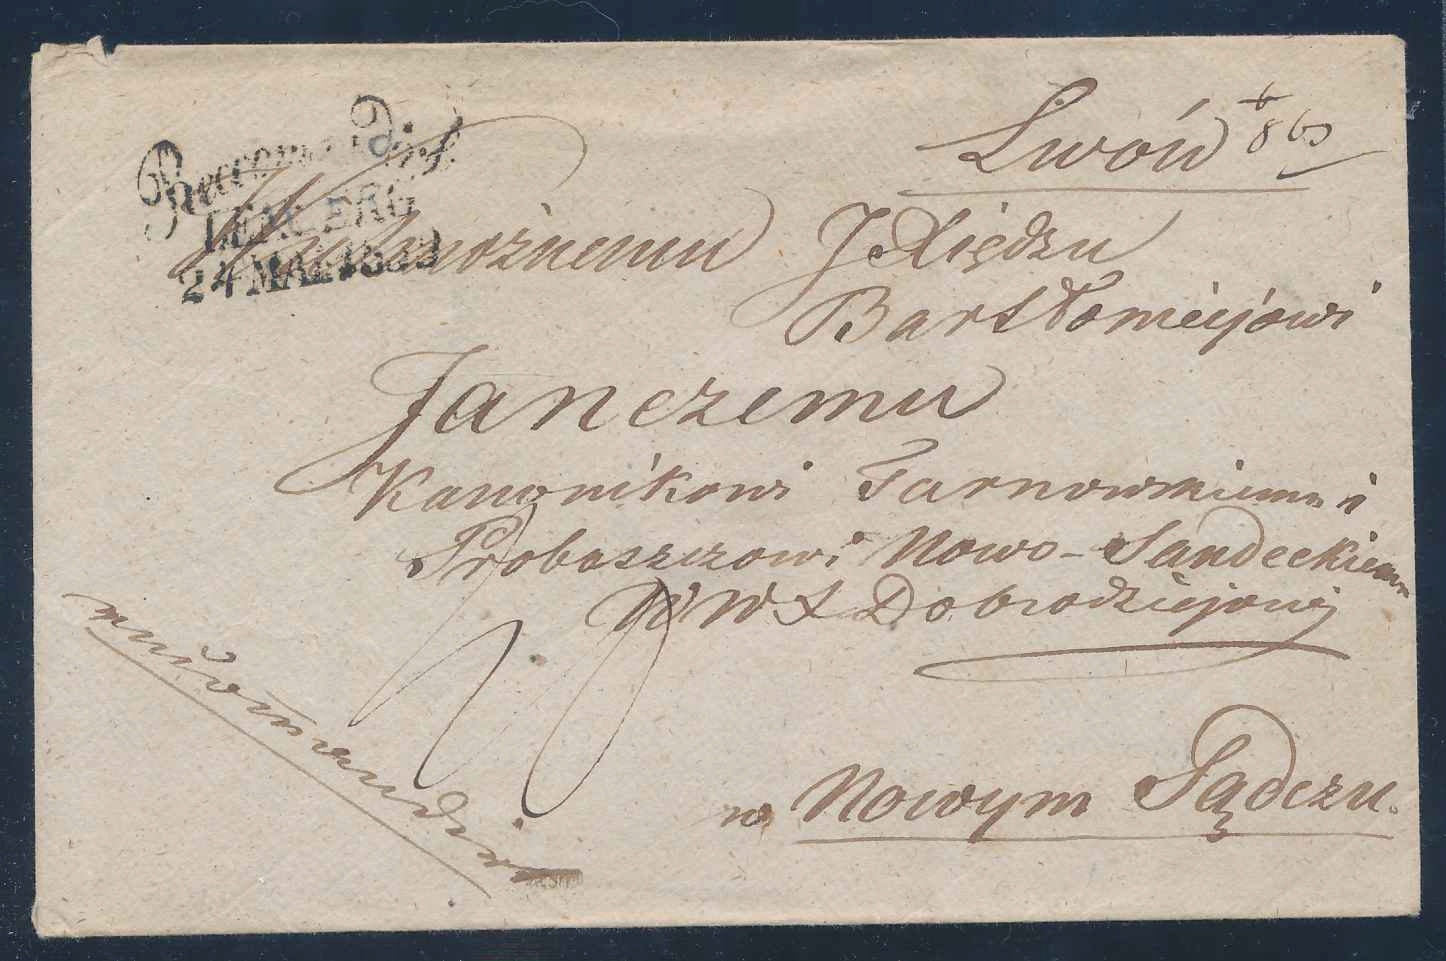 Recomandirt
LEMBERG
24 MAI
Lwów
Wielmożnemu J Xiędzu
Bartłomiejowi
Janczemu
Kanonikowi Tarnowskiemu i
Proboszczowi Nowo-Sandeckiemu
W W Dobrodziejowi
w Nowym Sączu.